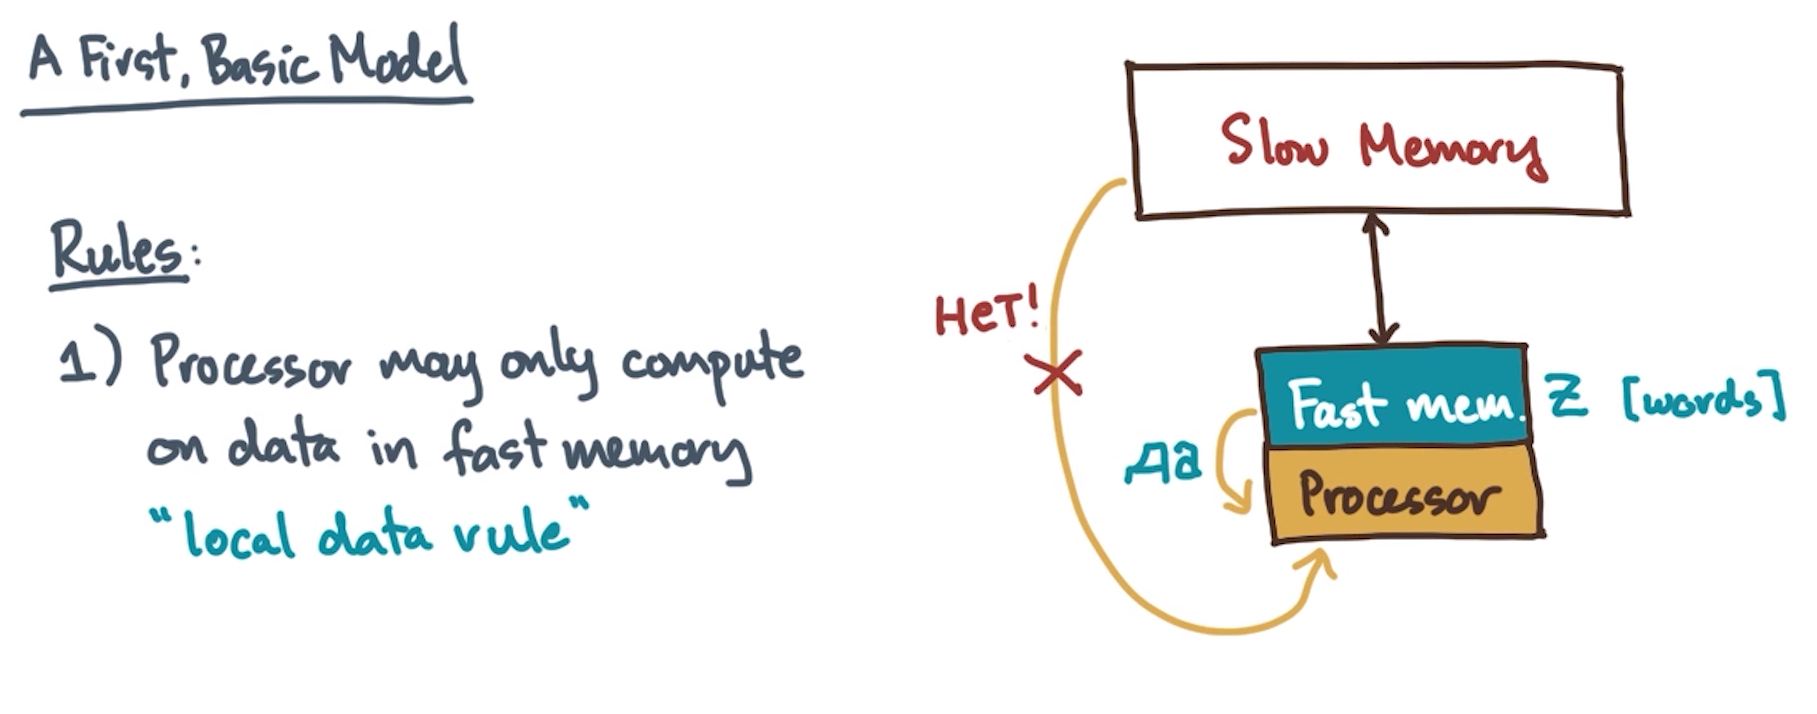 A First, Basic Model
Rules:
1) Processor may only compute
on data in fast memory
"local data rule"
Slow Memory
Нет!
Fast mem.
Z [words]
да
Processor